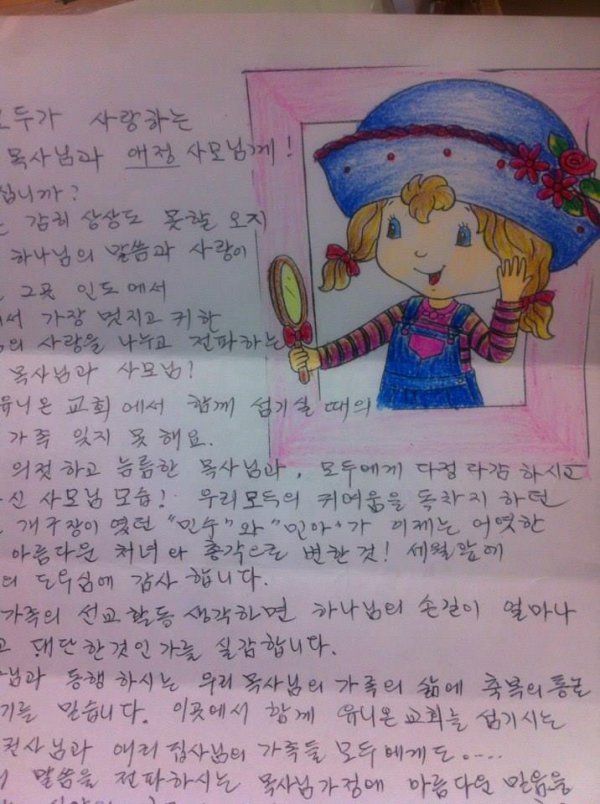 모두가 사랑하는
목사님과 애정 사모님께!
십니까?
감히 상상도 못할 오지
하나님의 말씀과 사랑이
그곳 인도에서
서 가장 멋지고 귀한
의 사랑을 나누고 전파하는
목사님과 사모님?
유니온 교회에서 함께 섬기실 때의
가족 잊지 못해요.
의젓하고 늠름한 목사님과, 모두에게 다정다감하시고
신 사모님 모습! 우리 모두의 귀여움을 독차지 하던
개구장이 였던 "민수"와 "민아"가 이제는 어엿한
아름다운 처녀와 총각으로 변한것! 세월앞에
의 도우심에 감사합니다.
가족의 선교활동 생각하면 하나님의 손길이 얼마나
고 대단한것인가를 실감합니다.
님과 동행하시는 우리 목사님의 가족의 삶에 축복의 통로
기를 믿습니다. 이곳에서 함께 유니온 교회를 섬기시는
권사님과 애리 집사님의 가족들 모두에게도.....
말씀을 전파하시는 목사님가정에 아름다운 믿음을